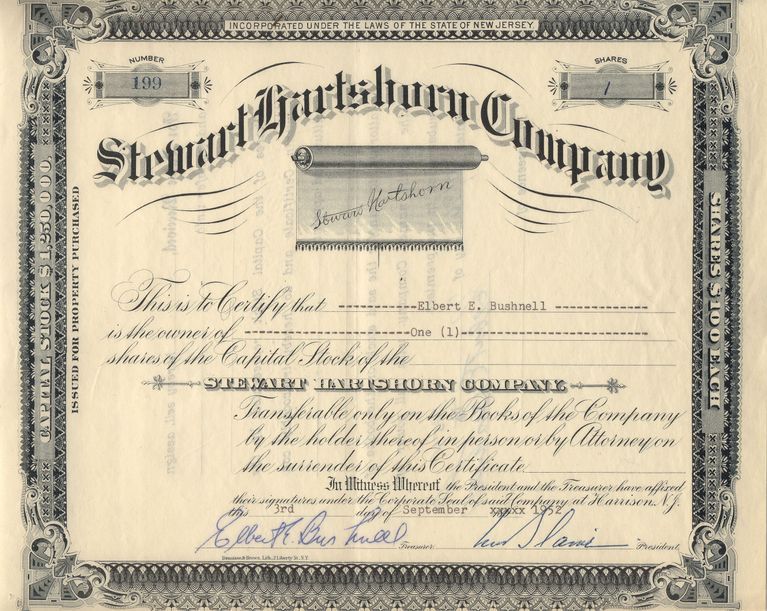 INCORPORATED UNDER THE LAWS OF THE STATE OF NEW JERSEY
NUMBER
199
SHARES
1
Stewart Hartshorn Company
Stewart Hartshorn
CAPITAL STOCK $1,250,000.
ISSUED FOR PROPERTY PURCHASED
SHARES $100 EACH
This is to Certify that ------------Elbert E. Bushnell --------------
is the owner of ------------------------One (1)---------------------------
shares of the Capital Stock of the
STEWART HARTSHORN COMPANY.
Transferable only on the Books of the Company
by the holder thereof in person or by Attorney on
the surrender of this Certificate.
In Witness Whereof the President and the Treasurer have affixed
their signatures under the Corporate Seal of said Company at Harrison, N.J.
this 3rd day of September xxxxx 1952
Elbert E Bushnell Treasurer. President.
Lith., 2 Liberty St., N.Y.